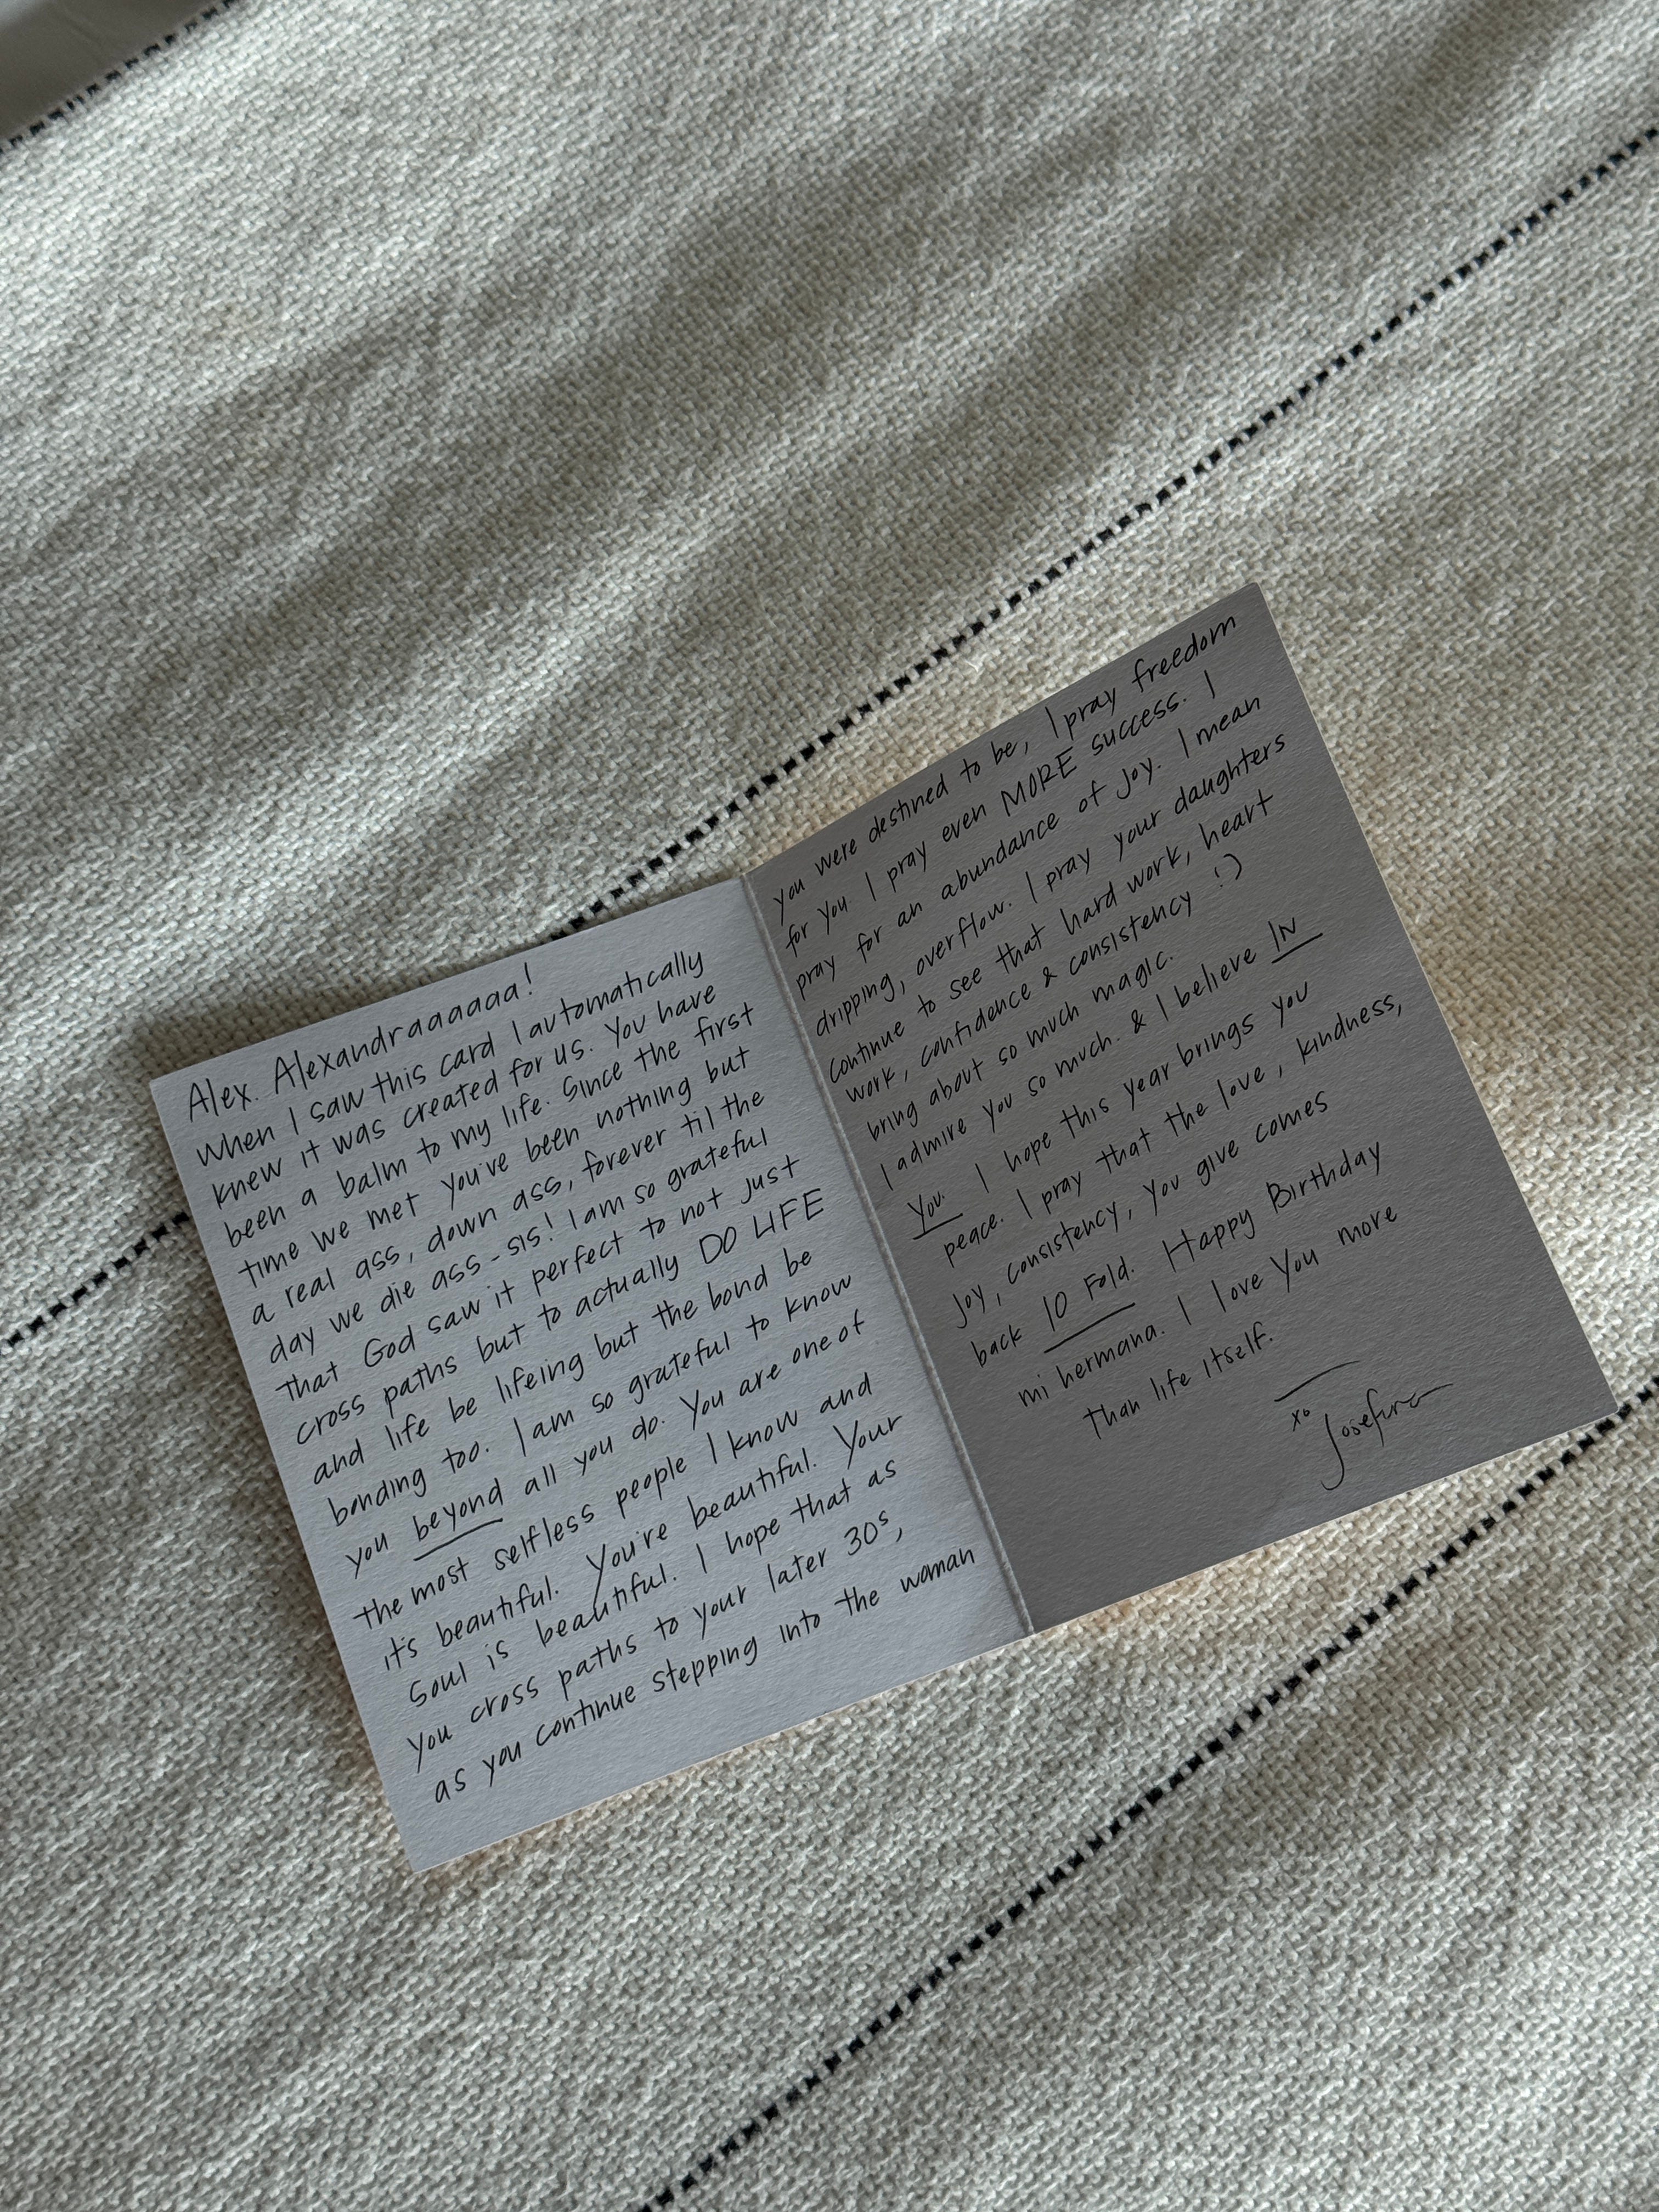 Alex. Alexandraaaaaa!
When I saw this card I automatically
knew it was created for us. You have
been a balm to my life. Since the first
time we met you've been nothing but
a real ass, down ass, forever til the
day we die ass-sis! I am so grateful
that God saw it perfect to not just
cross paths but to actually DO LIFE
and life be lifeing but the bond be
bonding too. I am so grateful to know
you beyond all you do. You are one of
the most selfless people I know and
it's beautiful. You're beautiful. Your
Soul is beautiful. I hope that as
you cross paths to your later 30s,
as you continue stepping into the woman
you were destined to be, I pray freedom
for you I pray even MORE success. I
pray for an abundance of Joy. I mean
dripping, overflow. I pray your daughters
continue to see that hard work, heart
work, confidence & consistency :)
bring about so much magic.
I admire you so much. & I believe IN
You. I hope this year brings you
peace. I pray that the love, kindness,
Joy, consistency, you give comes
back 10 Fold. Happy Birthday
mi hermana. I love You more
than life itself.
xo
Josefina